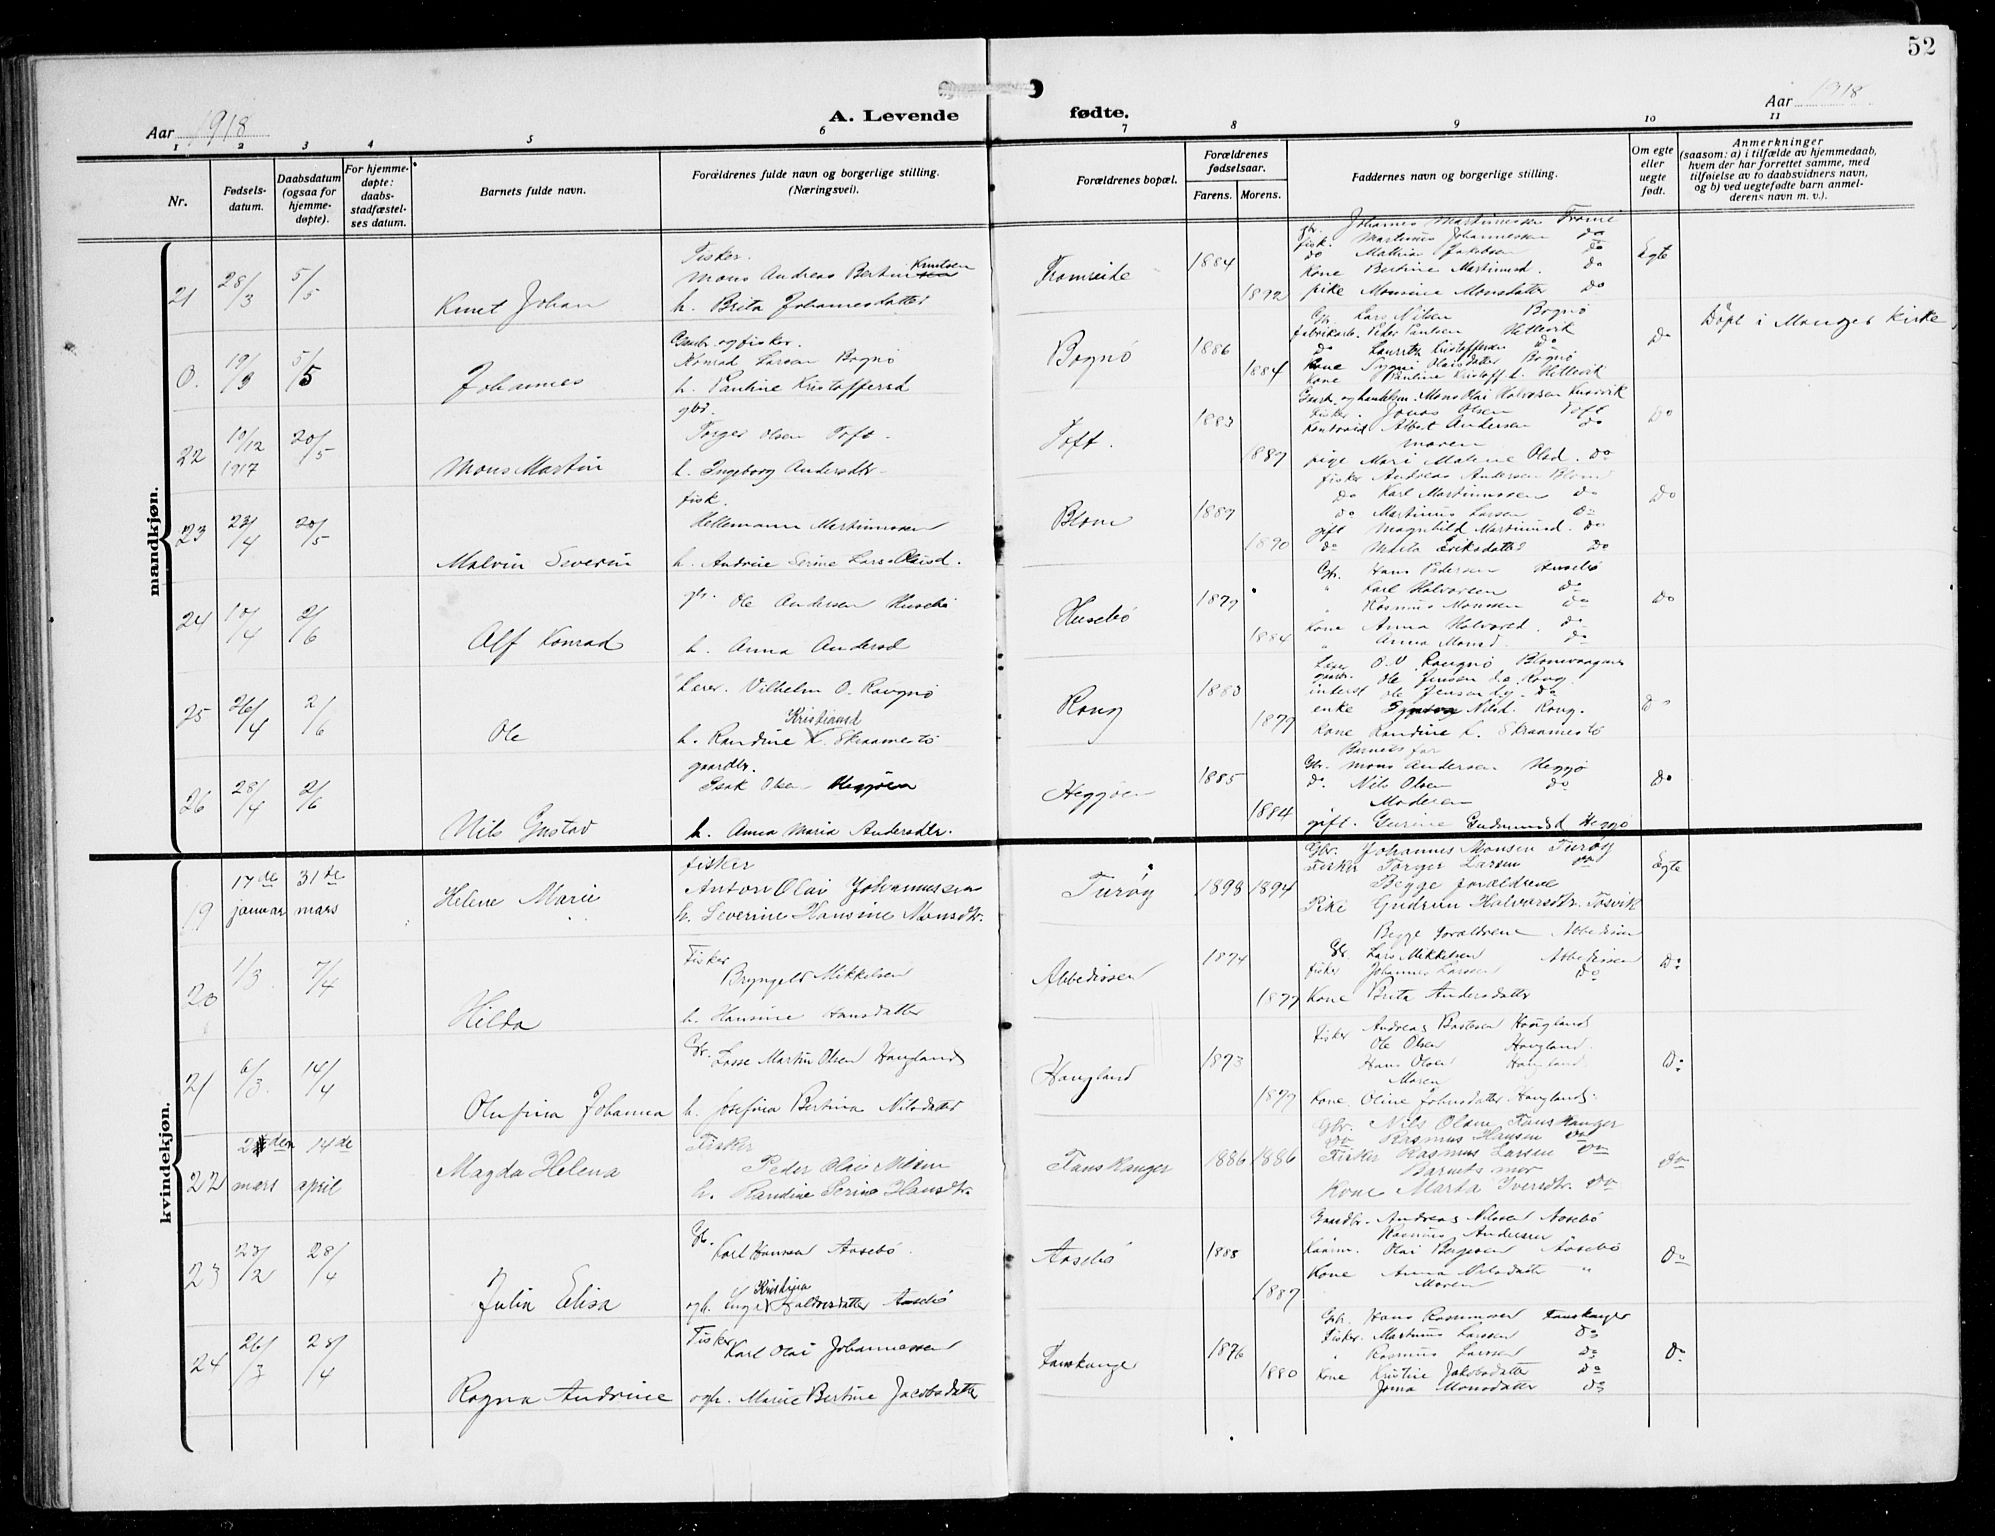 52
Aar 1918
A. Levende fødte.
Aar 1918
1 2 3 4 5 6 7 8 9 10 11
Nr.
Fødsels-
datum.
Daabsdatum
(ogsaa for
hjemme-
døpte).
For hjemme-
døpte:
daabs-
stadfæstel-
ses datum.
Barnets fulde navn.
Forældrenes fulde navn og borgerlige stilling.
(Næringsvei).
Forældrenes bopæl.
Forældrenes
fødselsaar.
Farens. Morens.
Faddernes navn og borgerlige stilling.
Om egte
eller
uegte
født.
Anmerkninger
(saasom: a) i tilfælde av hjemmedaab,
hvem der har forrettet samme, med
tilføielse av to daabsvidners navn,
og b) ved uegtefødte barn anmel-
derens navn m. v.).
mandkjøn.
21
28/3
5/5
Knut Johan
Fisker.
Mons Andreas Bertin Knutsen
h. Brita Johannesdatter
Tromseide
1884
1892
gbr. Johannes Martinussen
fisk. Martinus Johannessen do
do Mathias Jakobsen do
Kone Bertine Martinusd. do
pike Monsine Monsdatter do
Egte
0.
19/3
5/5
Johannes
Gaardbr. og fisker.
Konrad Larsen Bognø
h. Pauline Kristoffersd
Bognø
1886
1884
Gbr. Lars Nilsen Bognø
fabrikarb. Peder Paulsen Hellevik
do Lauritz Kristoffersen do
Kone Olaisdatter Bognø
Kone Pauline Kristoff. d. Hellevik
Do
Døpt i Manger Kirke
22
10/12
1917
20/5
Mons Martin
gbr.
Torger Olsen Toft.
h. Ingeborg Andersdtr.
Toft.
1883
1889
Gaardbr. og handelsm. Mons Olai Halvorsen
Fisker. Jonas Olsen Toft
Albert Andersen do
moren
pige Mari Malene Olsd. do
Do
23
23/4
20/5
Malvin Severin
fisk.
Hellemann Martinussen
h. Andrine Serine Larsd.
Blom
1889
1890
fisker Andreas Andersen Blom
do Karl Martinussen do
do Martinus Larsen do
gift Magnhild Martinusd. do
do Marta Eriksdatter do
Do
24
10/4
2/6
Alf Konrad
gbr. Ole Andersen Husebø
h. Anna Andersd
Husebø
1879
1884
Gbr. Hans Pedersen Husebø
" Karl Halvorsen do
" Rasmus Monsen do
Kone Anna Halvorsd. do
" Anna Monsd. do
Do
25
26/4
2/6
Ole
Lærer. Vilhelm O. Rongnø
Kristiansd
h. Randine K. Skraamestø
Rong
1880
1879
Lærer O. V. Rongnø Blomvaagnes
gaardbr. Ole Jensen d.e. Rong.
inderst Ole Jensen d.y. do
enke Nilsd. Rong.
Kone Randine K. Skraamestø
Do
26
28/4
2/6
Nils Gustav
gaardbr.
Isak Olsen Heggøen
h. Anna Maria Andersdtr.
Heggøen
1885
1884
Barnets far
Gbr. Mons Andersen Heggø
do. Nils Olsen do
Moderen
gift. Gurine Gudmundsd Heggø
Do
kvindekjøn.
19
17de januar
31de mars
Helene Marie
fisker
Anton Olai Johannessen
h. Severine Hansine Monsdtr.
Turøy
1893 1894
Gbr. Johannes Monsen Turøy
Fisker Torger Larsen do
Begge forældrene
Pike Gudrun Halvorsdtr. Tosvik
Egte
20
1/3
7/4
Hilda
Fisker
Bryngel Mikkelsen
h. Hansine Hansdatter
Abbedissen
1874
1877
Begge forældrene Abbedissen
Gbr. Lars Mikkelsen Abbedissen
fisker Johannes Larsen do
Kone Brita Andersdatter
Do
21
6/3
14/4
Olufina Johanna
Gbr. Lasse Martin Olsen Haugland
h. Josefina Bertina Nilsdatter
Haugland
1873
1879
Fisker Andreas Bastesen Haugland
Ole Olsen Haugland
Hans Olsen Haugland
Moren
Kone Oline Johnsdatter Haugland
Do
22
mars
14de april
Magda Helena
Fisker
Peder Olai Nilsen
h. Randine Serine Hansdtr.
Fanskanger
1886 1886
Gbr. Nils Olsen Fanskanger
do Rasmus Hansen do
Fisker Rasmus Larsen do
Barnets mor
Kone Marta Iversdtr. do
do
23
23/2
28/4
Julia Elisa
Gb. Karl Hansen Aasebø
Kristina
ogh. Aasebø
Aasebø
1888
1887
Gaardbr. Andreas Nilssen Aasebø
Rasmus Andersen
Olai Aasebø
Kone Anna Nilsdatter "
Moren
Do
24
26/3
28/4
Ragna Andrine
Fisker
Karl Olai Johannessen
ogh. Marie Bertine Jacobsdatter
Fanskanger
1876
1880
Gbr. Hans Rasmussen Fanskanger
Fisker. Martinus Larsen do
" Rasmus Larsen do
Kone Kristine Jakobsdatter do
Monsdatter do
Do